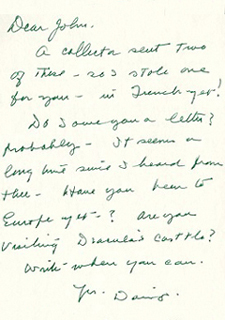 Dear John.
A collector sent two
of these - so I stole one
for you - in French yet!
Do I owe you a letter?
Probably - It seems a
long time since I heard from
thee - Have you been to
Europe yet - ? Are you
visiting Dracula's castle?
Write when you can.
Yr.